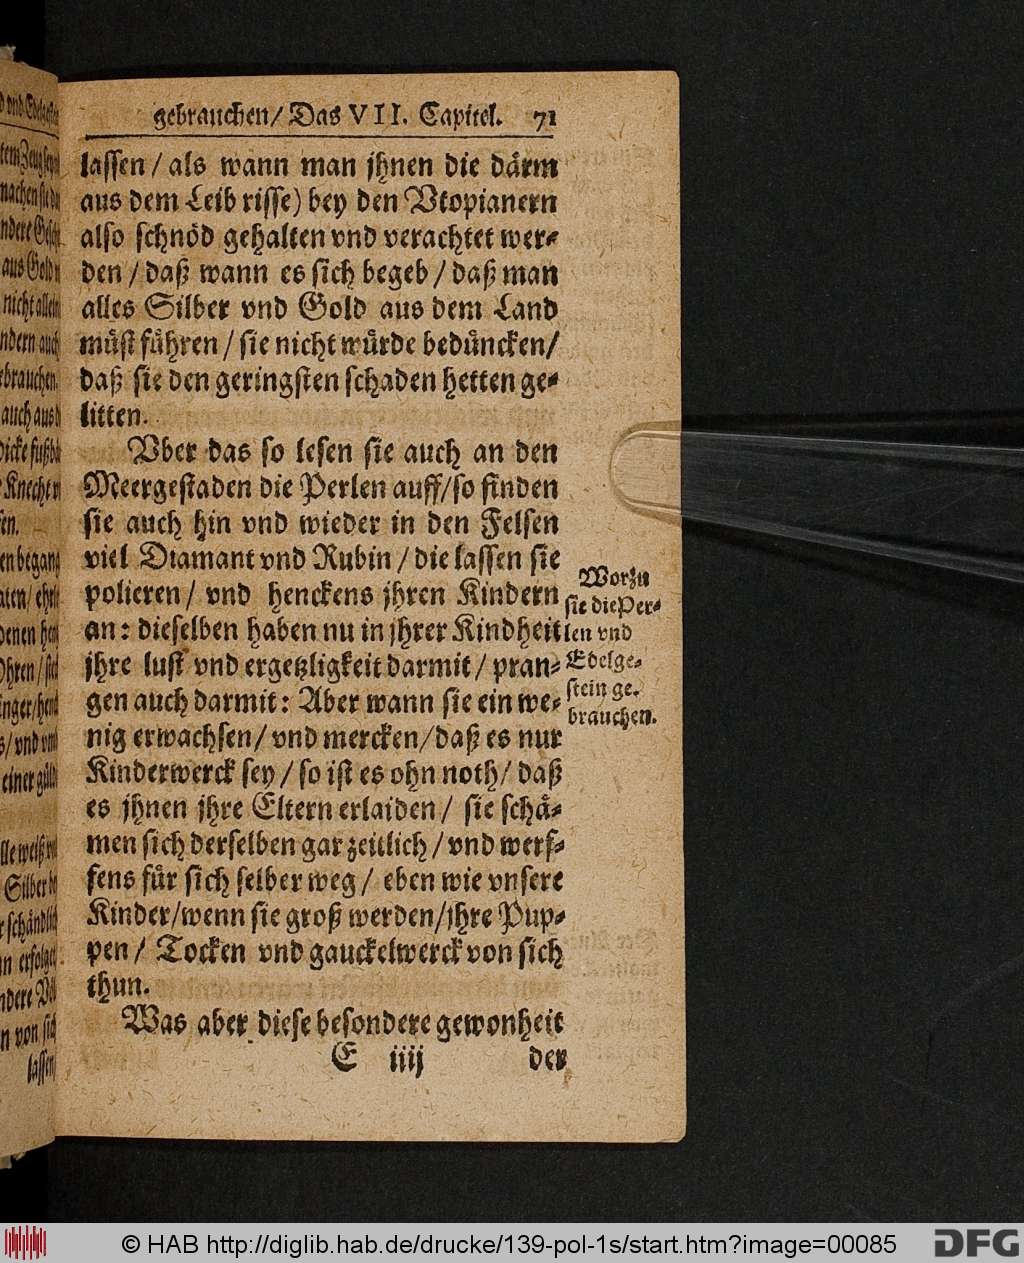 gebrauchen/ Das VII. Capitel. 71
lassen/ als wann man jhnen die därm
aus dem Leib risse) bey den Vtopianern
also schnöd gehalten vnd verachtet wer-
den/ daß wann es sich begeb/ daß man
alles Silber vnd Gold aus dem Land
müst führen/ sie nicht würde bedüncken/
daß sie den geringsten schaden hetten ge-
litten.
Vber das so lesen sie auch an den
Meergestaden die Perlen auff/ so finden
sie auch hin vnd wieder in den Felsen
viel Diamant vnd Rubin/ die lassen sie
polieren/ vnd henckens jhren Kindern
an: dieselben haben nu in jhrer Kindheit
jhre lust vnd ergetzligkeit darmit/ pran-
gen auch darmit: Aber wann sie ein we-
nig erwachsen/ vnd mercken/ daß es nur
Kinderwerck sey/ so ist es ohn noth/ daß
es jhnen jhre Eltern erlaiden/ sie schä-
men sich derselben gar zeitlich/ vnd werf-
fens für sich selber weg/ eben wie vnsere
Kinder/ wenn sie groß werden/ jhre Pup-
pen/ Tocken vnd gauckelwerck von sich
thun.
Was aber diese besondere gewonheit
E iiij der
Worzu
sie die Per-
len vnd
Edelge-
stein ge-
brauchen.
nicht allein
ndern auch
ebrauchen.
auch aus
Knecht
einer
Silber
von sich
lassen
© HAB http://diglib.hab.de/drucke/139-pol-1s/start.htm?image=00085
DFG